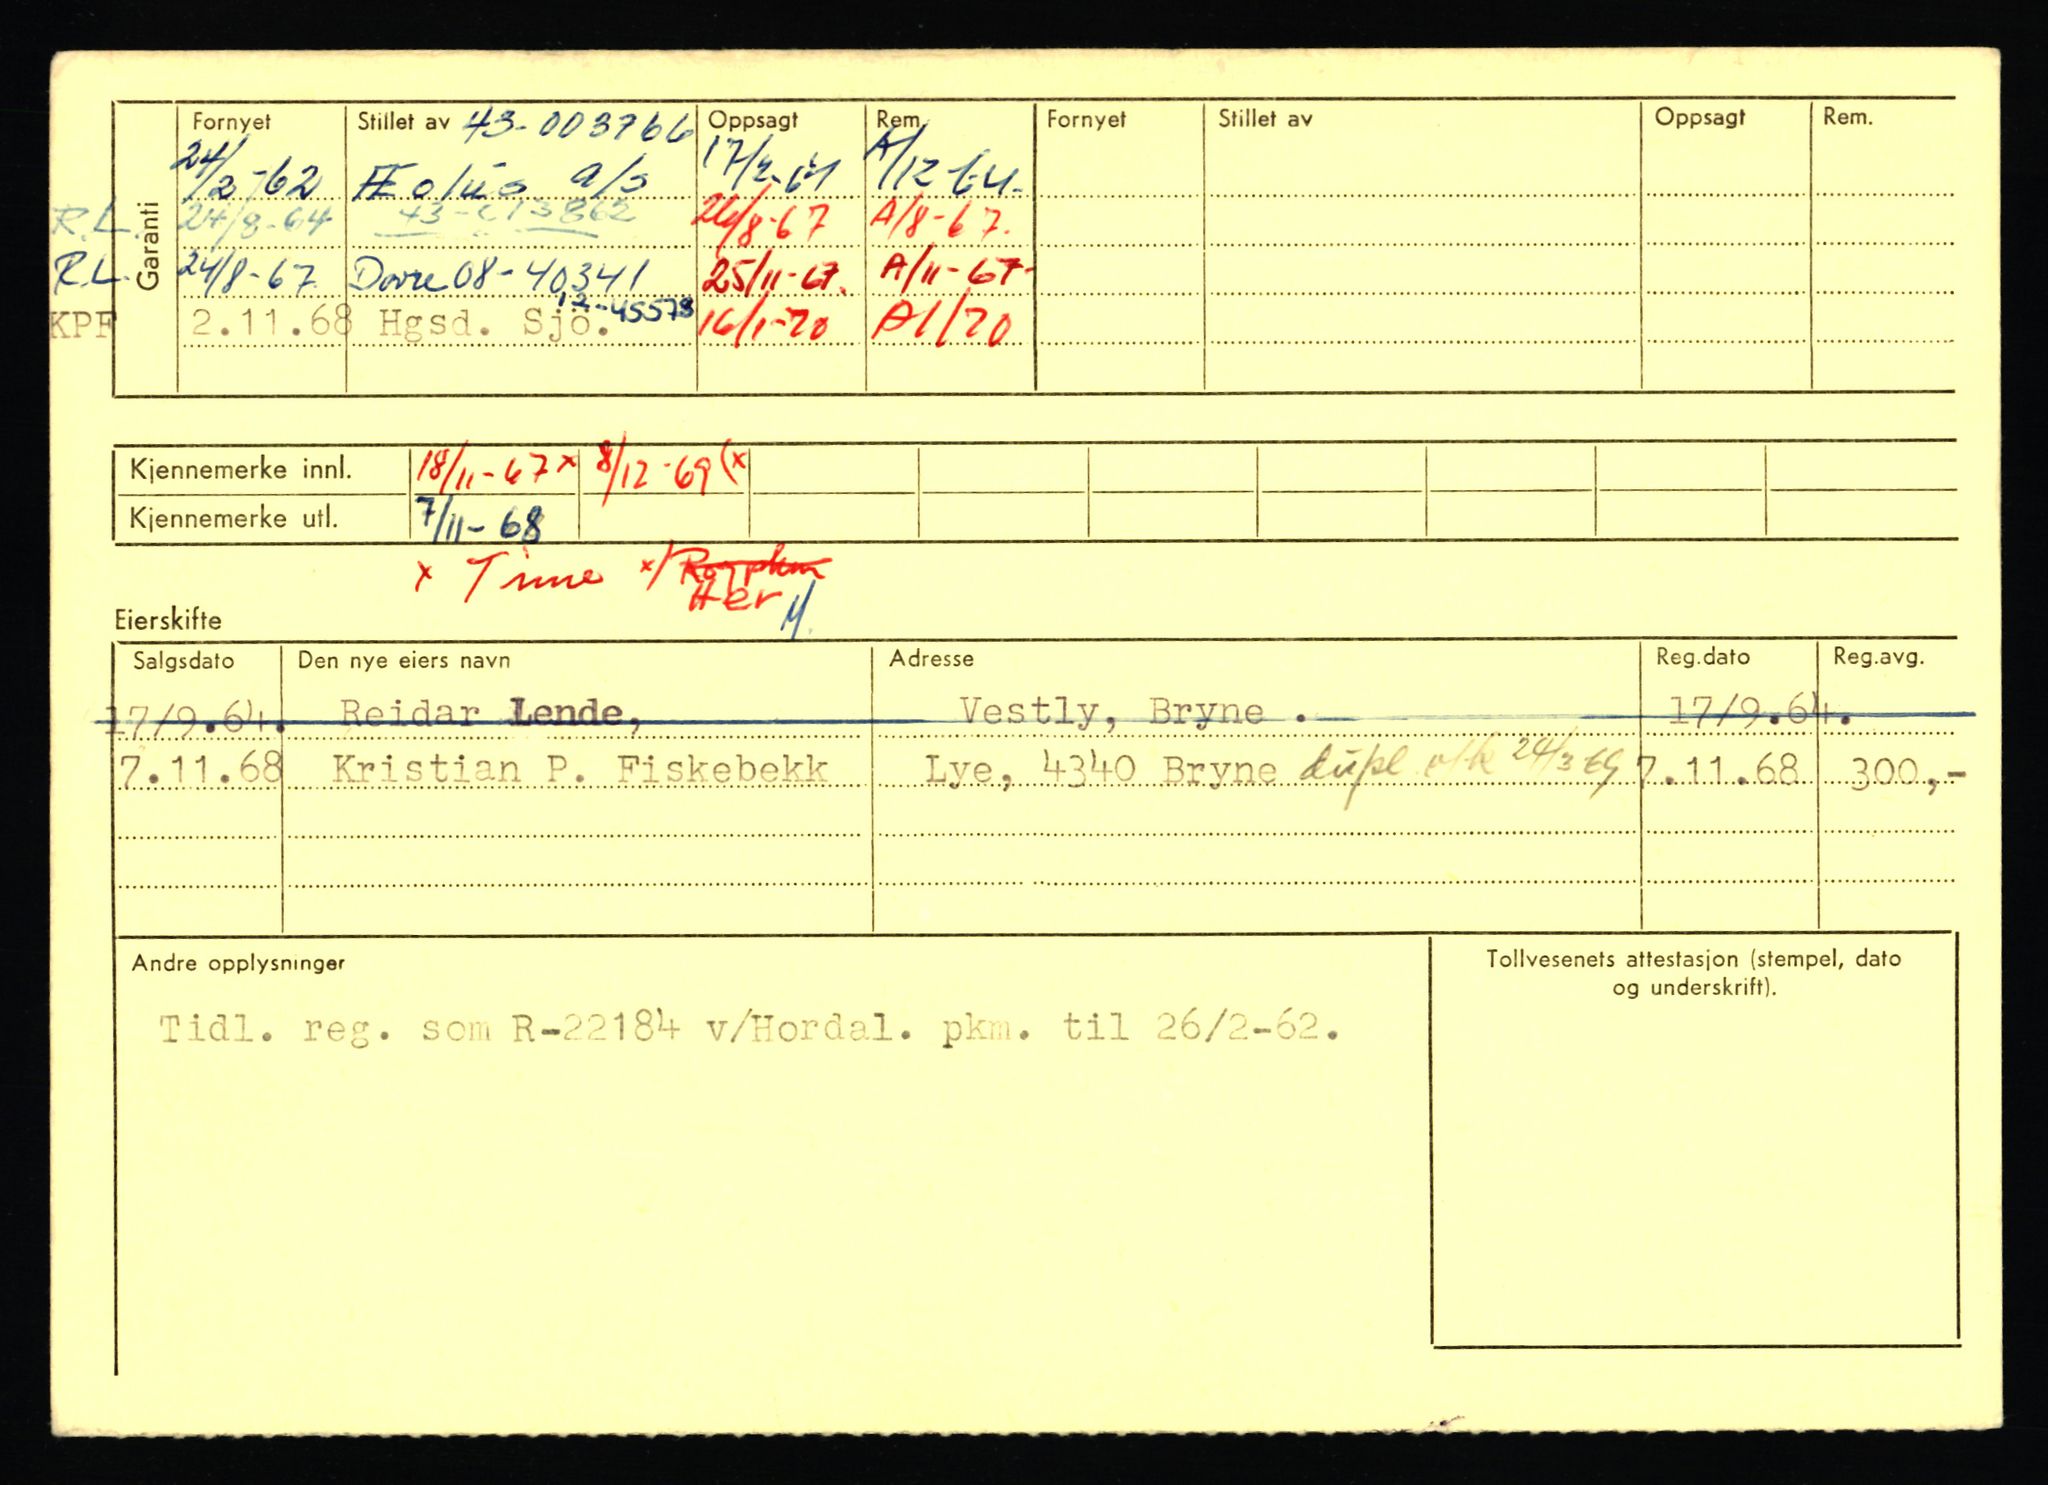 Garanti
Fornyet Stillet av 43-003766 Oppsagt Rem. Fornyet Stillet av Oppsagt Rem.
24/2-62 Æolus a/s 17/2-64 A/12-64.
R.L. 24/8-64 26/8-67 A/8-67.
R.L. 24/8-67. Dovre 08-40341 25/11-67. A/11-67-
KPF 2.11.68 Hgsd. Sjö. 12-45578 16/1-70 A1/70
Kjennemerke innl. 18/11-67 x 8/12-69 (x
Kjennemerke utl. 7/11-68
x Time x/ Rog pkm
Her
Eierskifte
Salgsdato Den nye eiers navn Adresse Reg.dato Reg.avg.
17/9.64. Reidar Lende, Vestly, Bryne . 17/9.64.
7.11.68 Kristian P. Fiskebekk Lye, 4340 Bryne dupl vtk 24/3 69 7.11.68 300,-
Andre opplysninger
Tidl. reg. som R-22184 v/Hordal. pkm. til 26/2-62.
Tollvesenets attestasjon (stempel, dato
og underskrift).